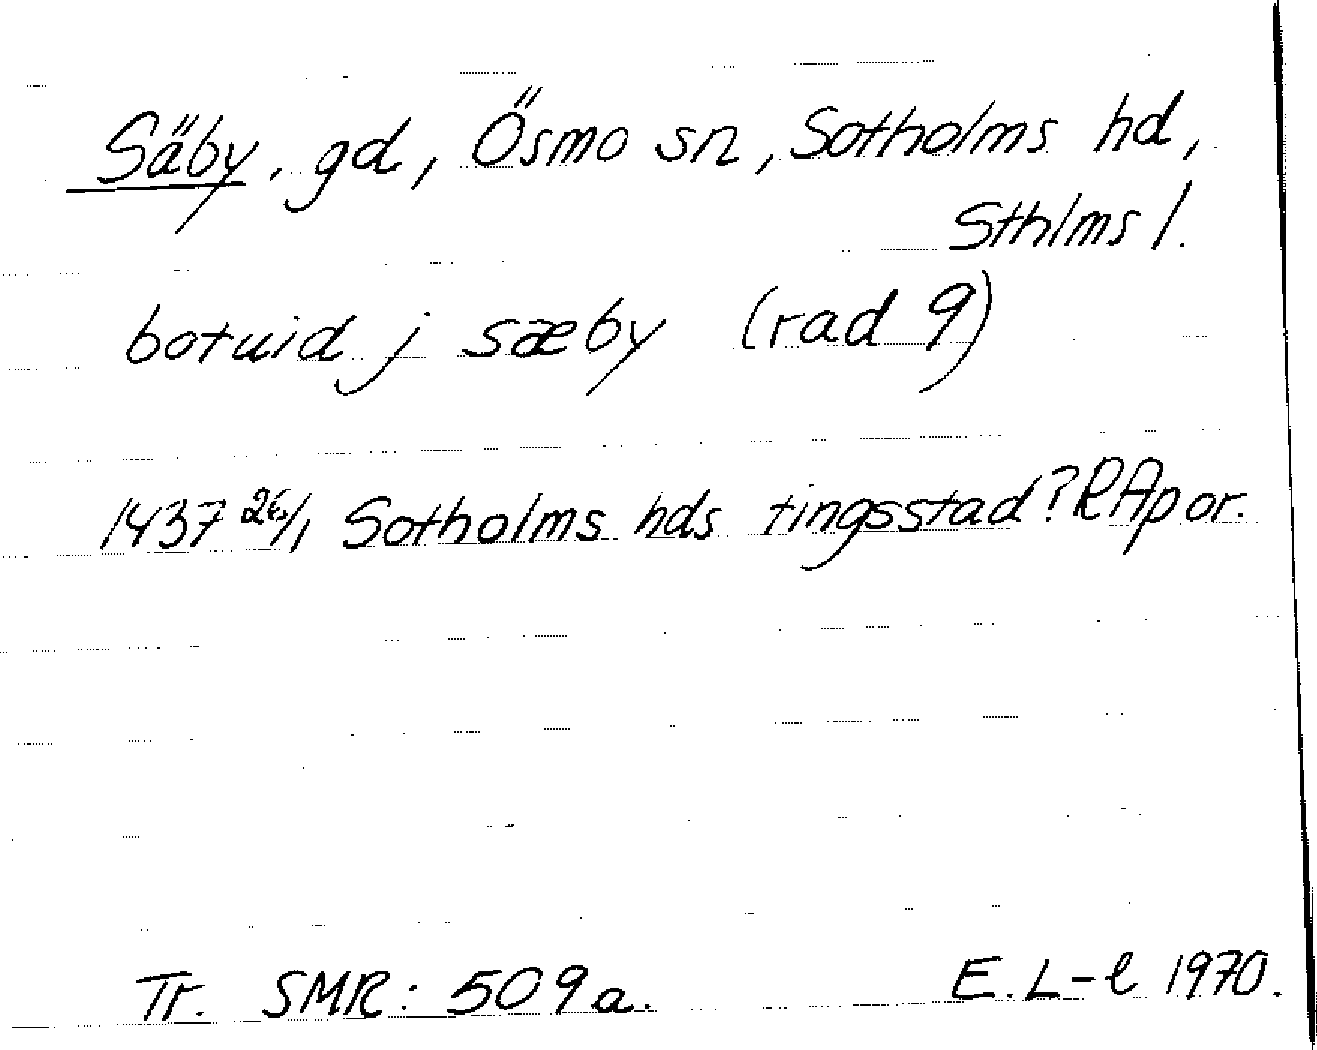 Säby, gd, Ösmo sn, Sotholms hd,
Sthlms l.
botuid j sæby (rad 9)
1437 26/1 Sotholms hds tingsstad? RAp or.
Tr. SMR: 509a. E. L-l 1970.